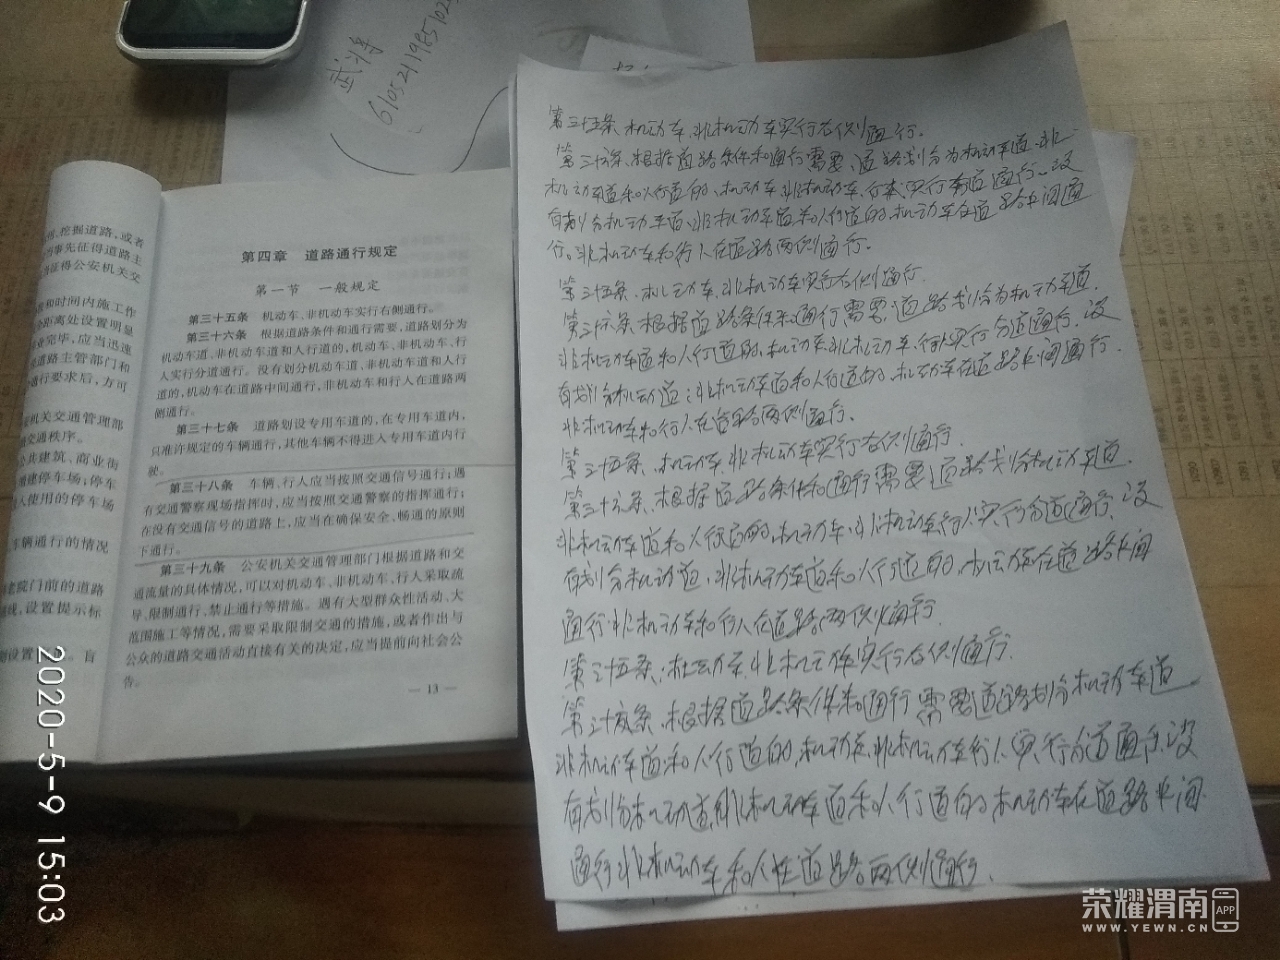 武将
第四章 道路通行规定
第一节 一般规定
第三十五条 机动车、非机动车实行右侧通行。
第三十六条 根据道路条件和通行需要，道路划分为
机动车道、非机动车道和人行道的，机动车、非机动车、行
人实行分道通行。没有划分机动车道、非机动车道和人行
道的，机动车在道路中间通行，非机动车和行人在道路两
侧通行。
第三十七条 道路划设专用车道的，在专用车道内，
只准许规定的车辆通行，其他车辆不得进入专用车道内行
驶。
第三十八条 车辆、行人应当按照交通信号通行；遇
有交通警察现场指挥时，应当按照交通警察的指挥通行；
在没有交通信号的道路上，应当在确保安全、畅通的原则
下通行。
第三十九条 公安机关交通管理部门根据道路和交
通流量的具体情况，可以对机动车、非机动车、行人采取疏
导、限制通行、禁止通行等措施。遇有大型群众性活动、大
范围施工等情况，需要采取限制交通的措施，或者作出与
公众的道路交通活动直接有关的决定，应当提前向社会公
告。
— 13 —
挖掘道路，或者
事先征得道路主
征得公安机关交
和时间内施工作
距离处设置明显
完毕，应当迅速
道路主管部门和
通行要求后，方可
安机关交通管理部
交通秩序。
公共建筑、商业街
建停车场；停车
使用的停车场
车辆通行的情况
院门前的道路
线，设置提示标
设置 。盲
第三十五条、机动车、非机动车实行右侧通行。
第三十六条、根据道路条件和通行需要、道路划分为机动车道、非
机动车道和人行道的、机动车、非机动车、行人实行分道通行。没
有划分机动车道、非机动车道和人行道的、机动车在道路中间通
行。非机动车和行人在道路两侧通行。
第三十五条、机动车、非机动车实行右侧通行.
第三十六条、根据道路条件和通行需要、道路划分为机动车道.
非机动车道和人行道的、机动车、非机动车、行人实行分道通行、没
有划分机动道、非机动车道和人行道的、机动车在道路中间通行.
非机动车和行人在道路两侧通行.
第三十五条、机动车、非机动车实行右侧通行.
第三十六条、根据道路条件和通行需要道路划分机动车道.
非机动车道和人行道的机动车、非机动车行人实行分道通行、没
有划分机动道、非机动车道和人行道的、机动车在道路中间
通行非机动车和行人在道路两侧通行.
第三十五条、机动车、非机动车实行右侧通行.
第三十六条、根据道路条件和通行需要道路划分机动车道.
非机动车道和人行道的、机动车、非机动车行人实行分道通行、没
有划分机动道、非机动车道和人行道的机动车在道路中间.
通行非机动车和人在道路两侧通行.
2020-5-9 15:03
荣耀渭南 APP
WWW.YEWN.CN